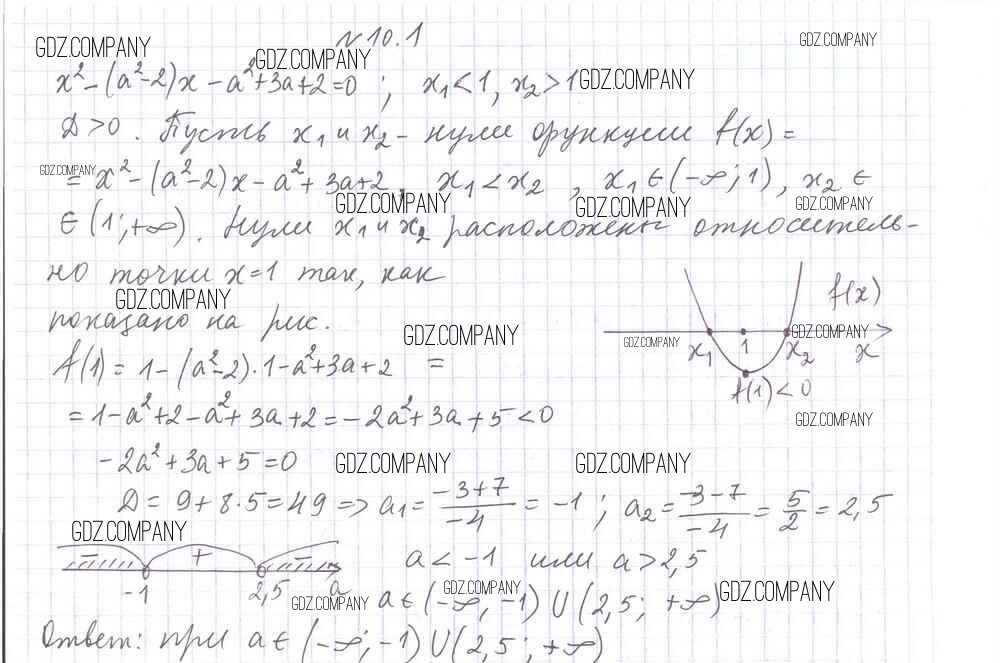 GDZ.COMPANY №10.1 GDZ.COMPANY
GDZ.COMPANY
x² - (a²-2)x - a²+3a+2=0 ; x₁<1, x₂>1 GDZ.COMPANY
D>0. Пусть x₁ и x₂ - нули функции f(x) =
GDZ.COMPANY
= x² - (a²-2)x - a² + 3a+2, x₁<x₂, x₁∈(-∞; 1), x₂ ∈
GDZ.COMPANY GDZ.COMPANY GDZ.COMPANY
∈ (1; +∞). Нули x₁ и x₂ расположены относитель-
но точки x=1 так, как
GDZ.COMPANY
показано на рис.
f(x)
GDZ.COMPANY GDZ.COMPANY GDZ.COMPANY
x₁ 1 x₂ x
f(1)<0
f(1) = 1 - (a²-2)·1 - a²+3a+2 =
= 1-a²+2-a²+3a+2 = -2a²+3a+5<0
GDZ.COMPANY
-2a²+3a+5=0 GDZ.COMPANY GDZ.COMPANY
D = 9+8·5=49 => a₁ = (-3+7)/(-4) = -1 ; a₂ = (-3-7)/(-4) = 5/2 = 2,5
GDZ.COMPANY
- + -
a < -1 или a > 2,5
-1 2,5 a
a∈(-∞; -1) U (2,5; +∞)
GDZ.COMPANY GDZ.COMPANY GDZ.COMPANY
Ответ: при a∈(-∞; -1) U (2,5; +∞)